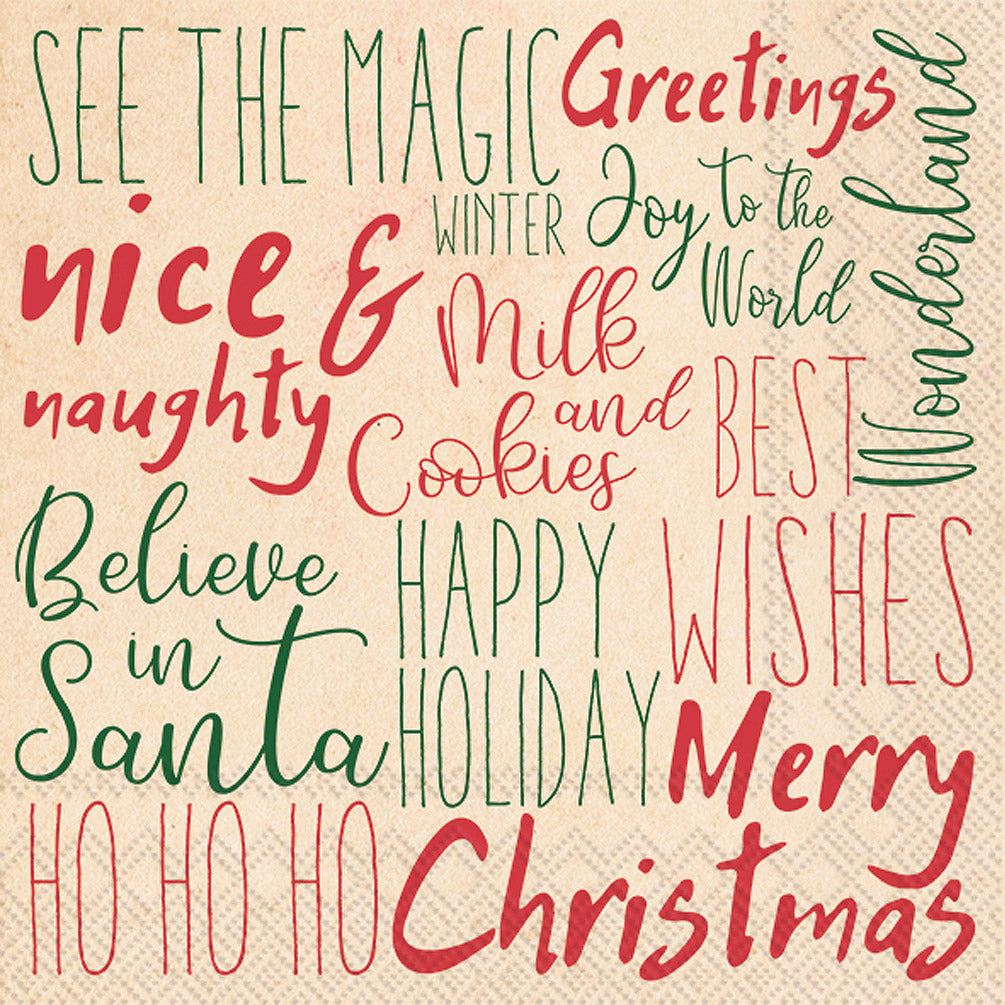 SEE THE MAGIC
Greetings
WINTER
Wonderland
Joy to the
World
nice &
naughty
Milk
and
Cookies
BEST
WISHES
Believe
in
Santa
HAPPY
HOLIDAY
Merry
Christmas
HO HO HO